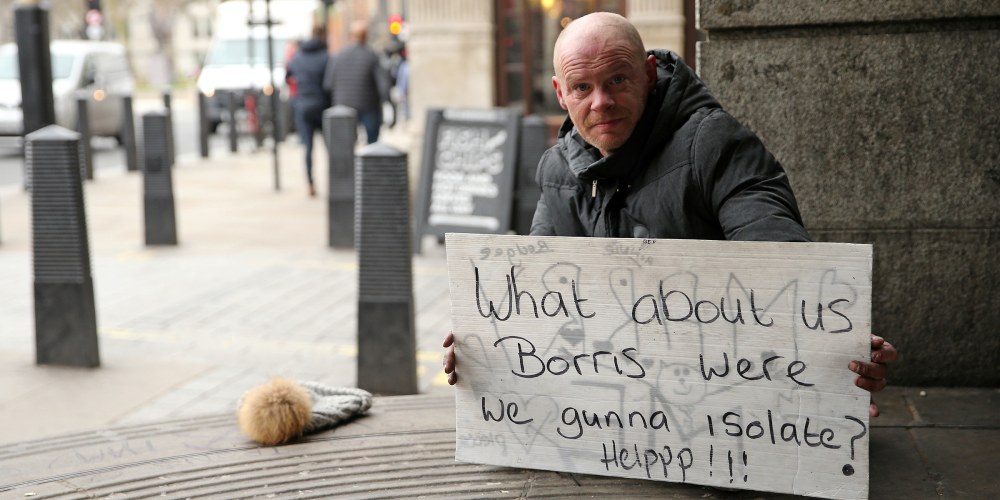 What about us
Borris were
we gunna isolate?
Helppp!!!